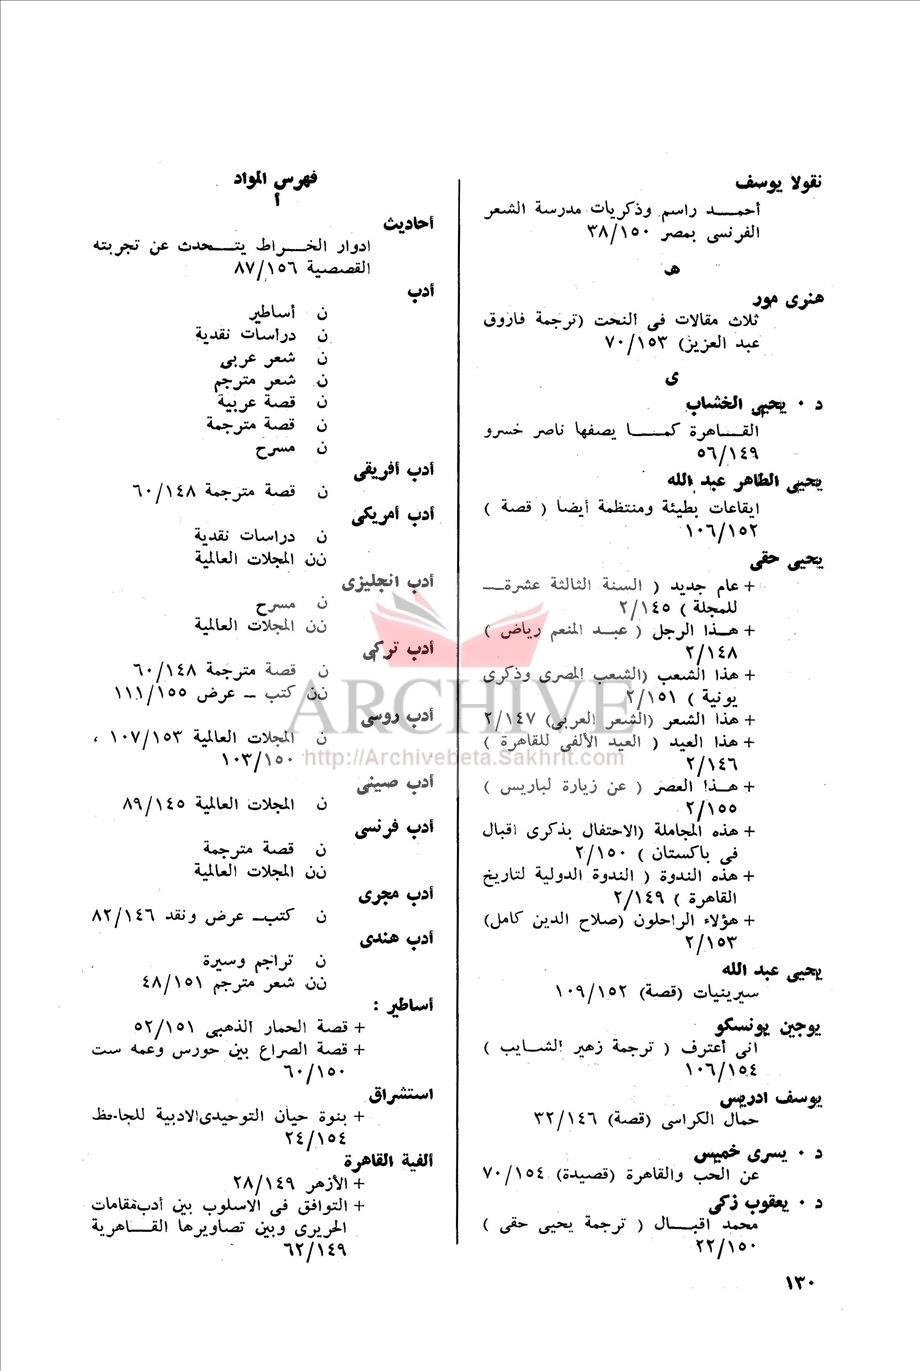 نقولا يوسف
أحمـــد راسم وذكريات مدرسة الشعر
الفرنسى بمصر ٣٨/١٥٠
هـ
هنرى مور
ثلاث مقالات فى النحت (ترجمة فاروق
عبد العزيز) ٧٠/١٥٣
ى
د ٠ يحيى الخشاب
القـــاهرة كمـــا يصفها ناصر خسرو
٥٦/١٤٩
يحيى الطاهر عبد الله
ايقاعات بطيئة ومنتظمة أيضا ( قصة )
١٠٦/١٥٢
يحيى حقى
+ عام جديد ( السنة الثالثة عشرة ــ
للمجلة ) ٢/١٤٥
+ هـذا الرجل ( عبـد المنعم رياض )
٢/١٤٨
+ هذا الشعب (الشعب المصرى وذكرى
يونية ) ٢/١٥١
+ هذا الشعر (الشعر العربى) ٢/١٤٧
+ هذا العيد ( العيد الألفى للقاهرة )
٢/١٤٦
+ هـذا العصر ( عن زيارة لباريس )
٢/١٥٥
+ هذه المجاملة (الاحتفال بذكرى اقبال
فى باكستان ) ٢/١٥٠
+ هذه الندوة ( الندوة الدولية لتاريخ
القاهرة ) ٢/١٤٩
+ هؤلاء الراحلون (صلاح الدين كامل)
٢/١٥٣
يحيى عبد الله
سيرينيات (قصة) ١٠٩/١٥٢
يوجين يونسكو
انى أعترف ( ترجمة زهير الشـايب )
١٠٦/١٥٤
يوسف ادريس
حمال الكراسى (قصة) ٣٢/١٤٦
د ٠ يسرى خميس
عن الحب والقاهرة (قصيدة) ٧٠/١٥٤
د ٠ يعقوب زكى
محمد اقبـــال ( ترجمة يحيى حقى )
٢٢/١٥٠
فهرس المواد
أ
أحاديث
ادوار الخـــراط يتـــحدث عن تجربته
القصصية ٨٧/١٥٦
أدب
ن أساطير
ن دراسات نقدية
ن شعر عربى
ن شعر مترجم
ن قصة عربية
ن قصة مترجمة
ن مسرح
أدب أفريقى
ن قصة مترجمة ٦٠/١٤٨
أدب أمريكى
ن دراسات نقدية
ن‌ن المجلات العالمية
أدب انجليزى
ن مسرح
ن‌ن المجلات العالمية
أدب تركى
ن قصة مترجمة ٦٠/١٤٨
ن‌ن كتب ــ عرض ١١١/١٥٥
أدب روسى
ن المجلات العالمية ١٠٧/١٥٣ ،
١٠٣/١٥٠
أدب صينى
ن المجلات العالمية ٨٩/١٤٥
أدب فرنسى
ن قصة مترجمة
ن‌ن المجلات العالمية
أدب مجرى
ن كتب ــ عرض ونقد ٨٢/١٤٦
أدب هندى
ن تراجم وسيرة
ن‌ن شعر مترجم ٤٨/١٥١
أساطير :
+ قصة الحمار الذهبى ٥٢/١٥١
+ قصة الصراع بين حورس وعمه ست
٦٠/١٥٠
استشراق
+ بنوة حيان التوحيدى الادبية للجاحظ
٢٤/١٥٤
ألفية القاهرة
+ الأزهر ٢٨/١٤٩
+ التوافق فى الاسلوب بين أدب مقامات
الحريرى وبين تصاويرها القـــاهرية
٦٢/١٤٩
١٣٠
ARCHIVE
http://Archivebeta.Sakhrit.com